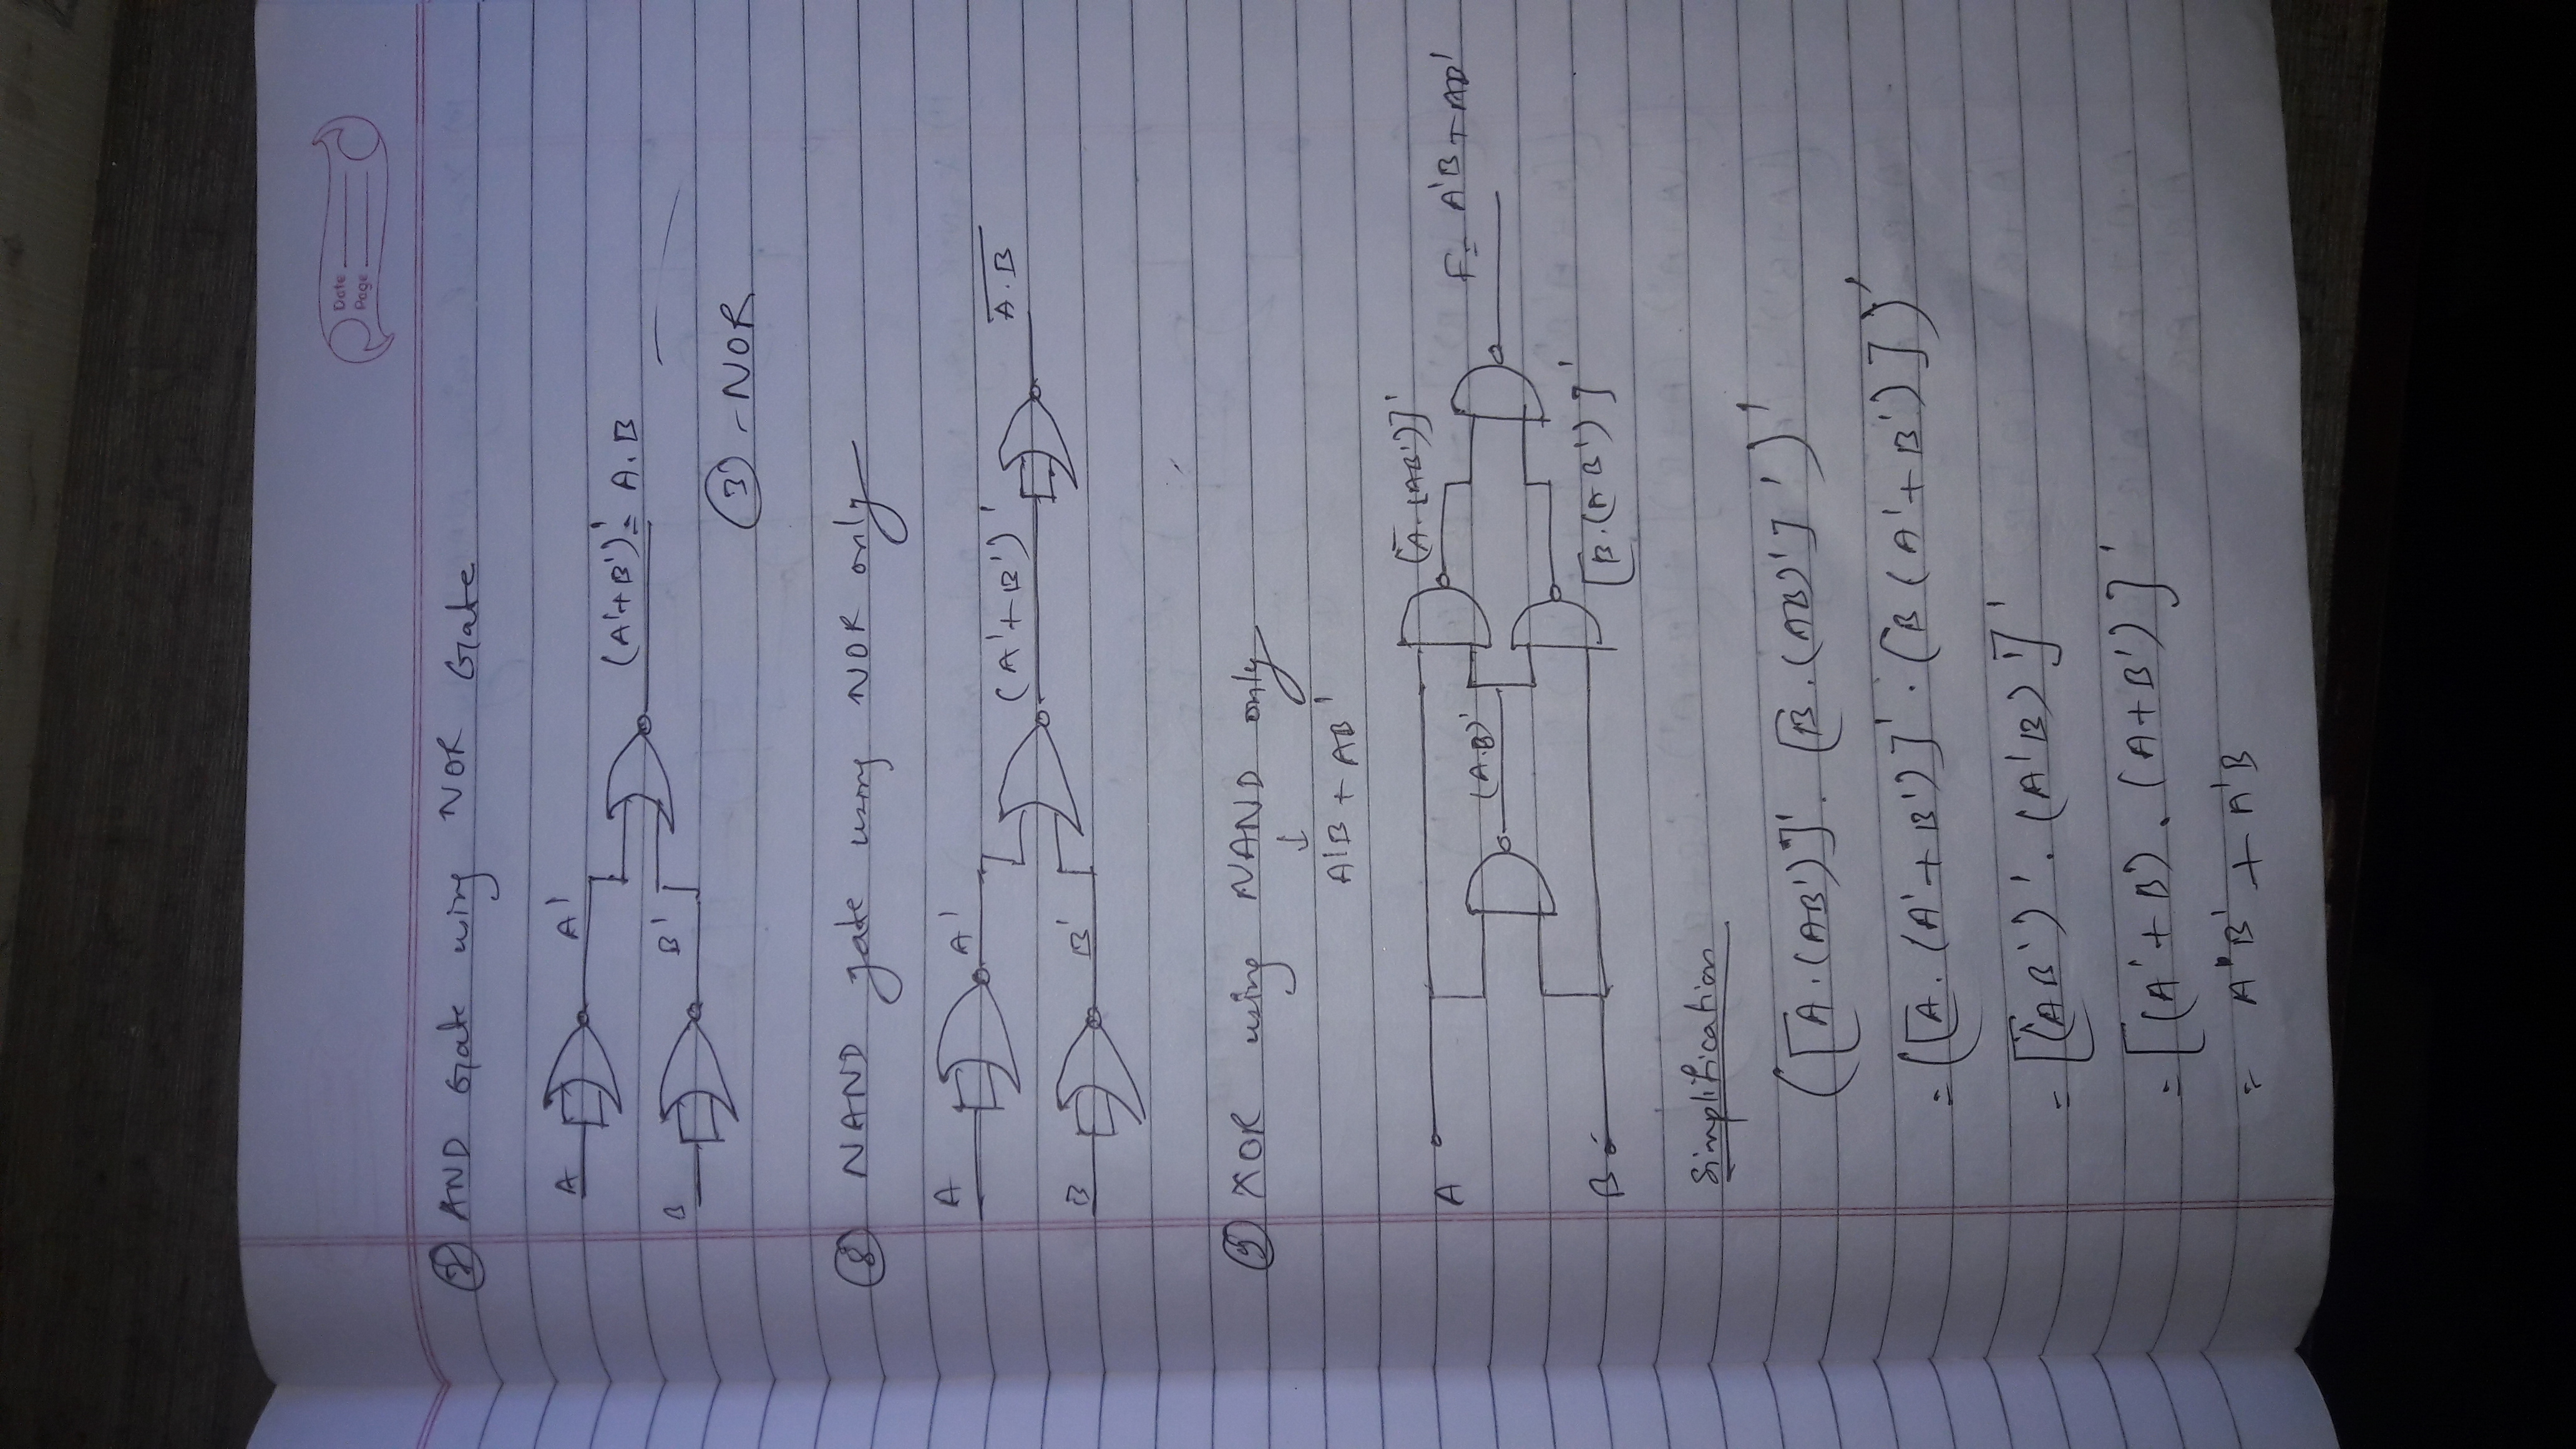 Date
Page
⑦ AND Gate using NOR Gate
A A' (A'+B')' = A.B
B B'
③ - NOR
⑧ NAND gate using NOR only
A A' (A'+B')' \overline{A.B}
B B'
⑨ XOR using NAND only
↓
A'B + AB'
A (A.B)' [A.(AB')]' F = A'B + AB'
B [B.(AB')]'
Simplification
([A.(AB')]'. [B.(AB)']')'
= ([A.(A'+B')]'.[B(A'+B')])'
= [(AB')'.(A'B)']'
= [(A'+B).(A+B')]'
= A'B' + A'B